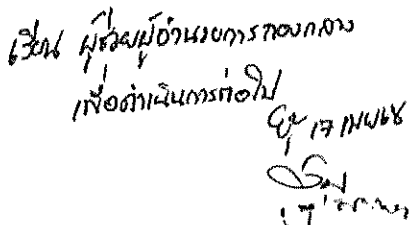 เรียน ผู้ช่วยผู้อำนวยการกองกลาง
เพื่อดำเนินการต่อไป
17 เมย 68